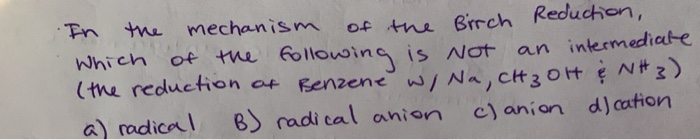 In the mechanism of the Birch Reduction,
which of the following is NOT an intermediate
(the reduction of Benzene w/ Na, CH3OH & NH3)
a) radical B) radical anion c) anion d) cation